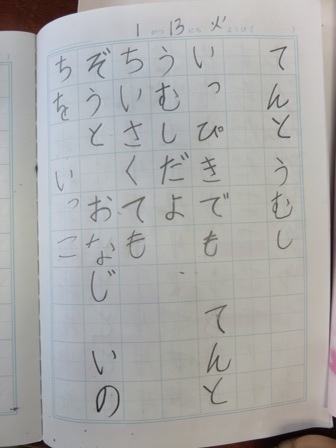 1 がつ 13 にち 火 ようび (　)
てんとうむし
いっぴきでも　てんと
うむしだよ
ちいさくても
ぞうと　おなじ　いの
ちを　いっこ